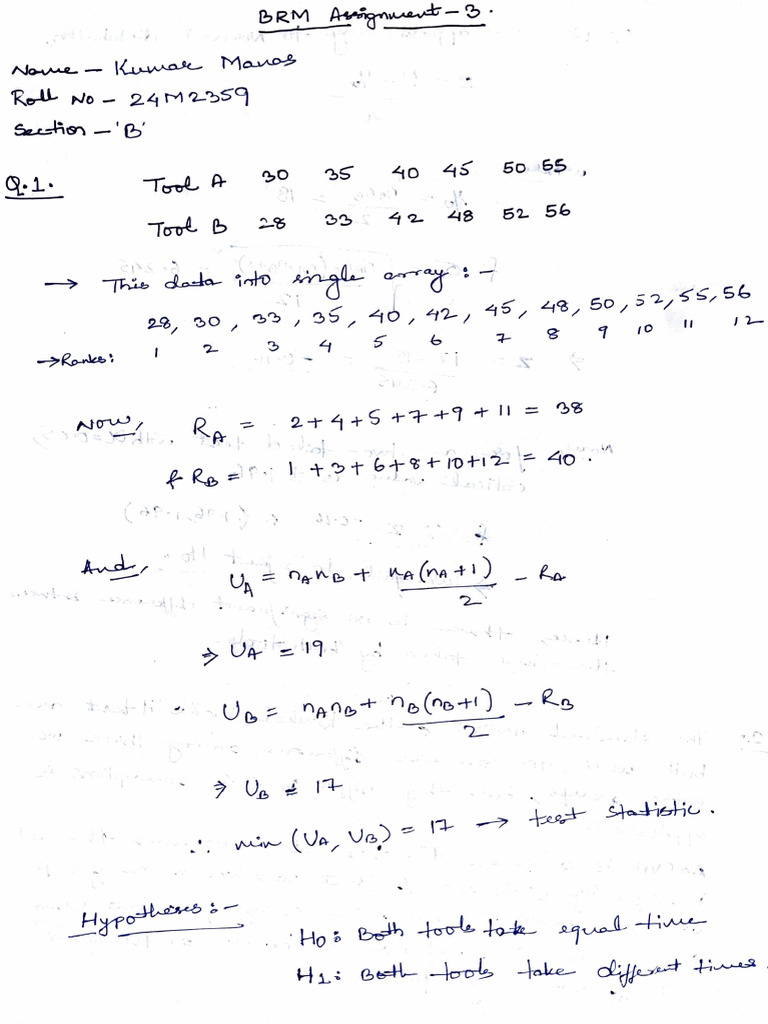 BRM Assignment-3.
Name - Kumar Manas
Roll No - 24M2359
Section - 'B'
Q.1. Tool A 30 35 40 45 50 55,
Tool B 28 33 42 48 52 56
→ This data into single array :-
28, 30, 33, 35, 40, 42, 45, 48, 50, 52, 55, 56
→ Ranks: 1 2 3 4 5 6 7 8 9 10 11 12
Now, R_A = 2+4+5+7+9+11 = 38
& R_B = 1+3+6+8+10+12 = 40.
And, U_A = n_A n_B + n_A(n_A+1)/2 - R_A
⇒ U_A = 19
U_B = n_A n_B + n_B(n_B+1)/2 - R_B
⇒ U_B = 17
∴ min (U_A, U_B) = 17 → test statistic.
Hypotheses :-
H0: Both tools take equal time
H1: Both tools take different times.